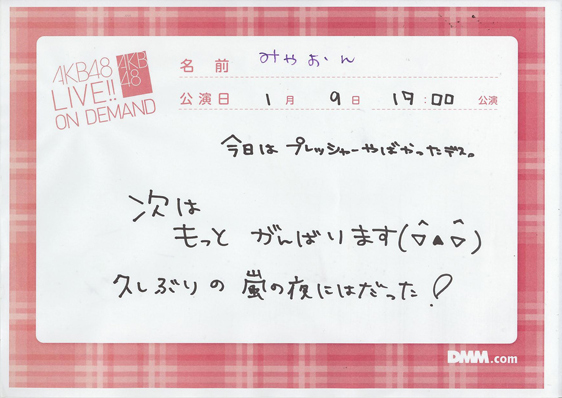 AKB48
LIVE!!
ON DEMAND
AKB
48
名前 みやおん
公演日 1月 9日 17:00 公演
今日は プレッシャーやばかったデス。
次は
もっと がんばります(^▽▲^▽)
久しぶりの 嵐の夜にはだった!
DMM.com